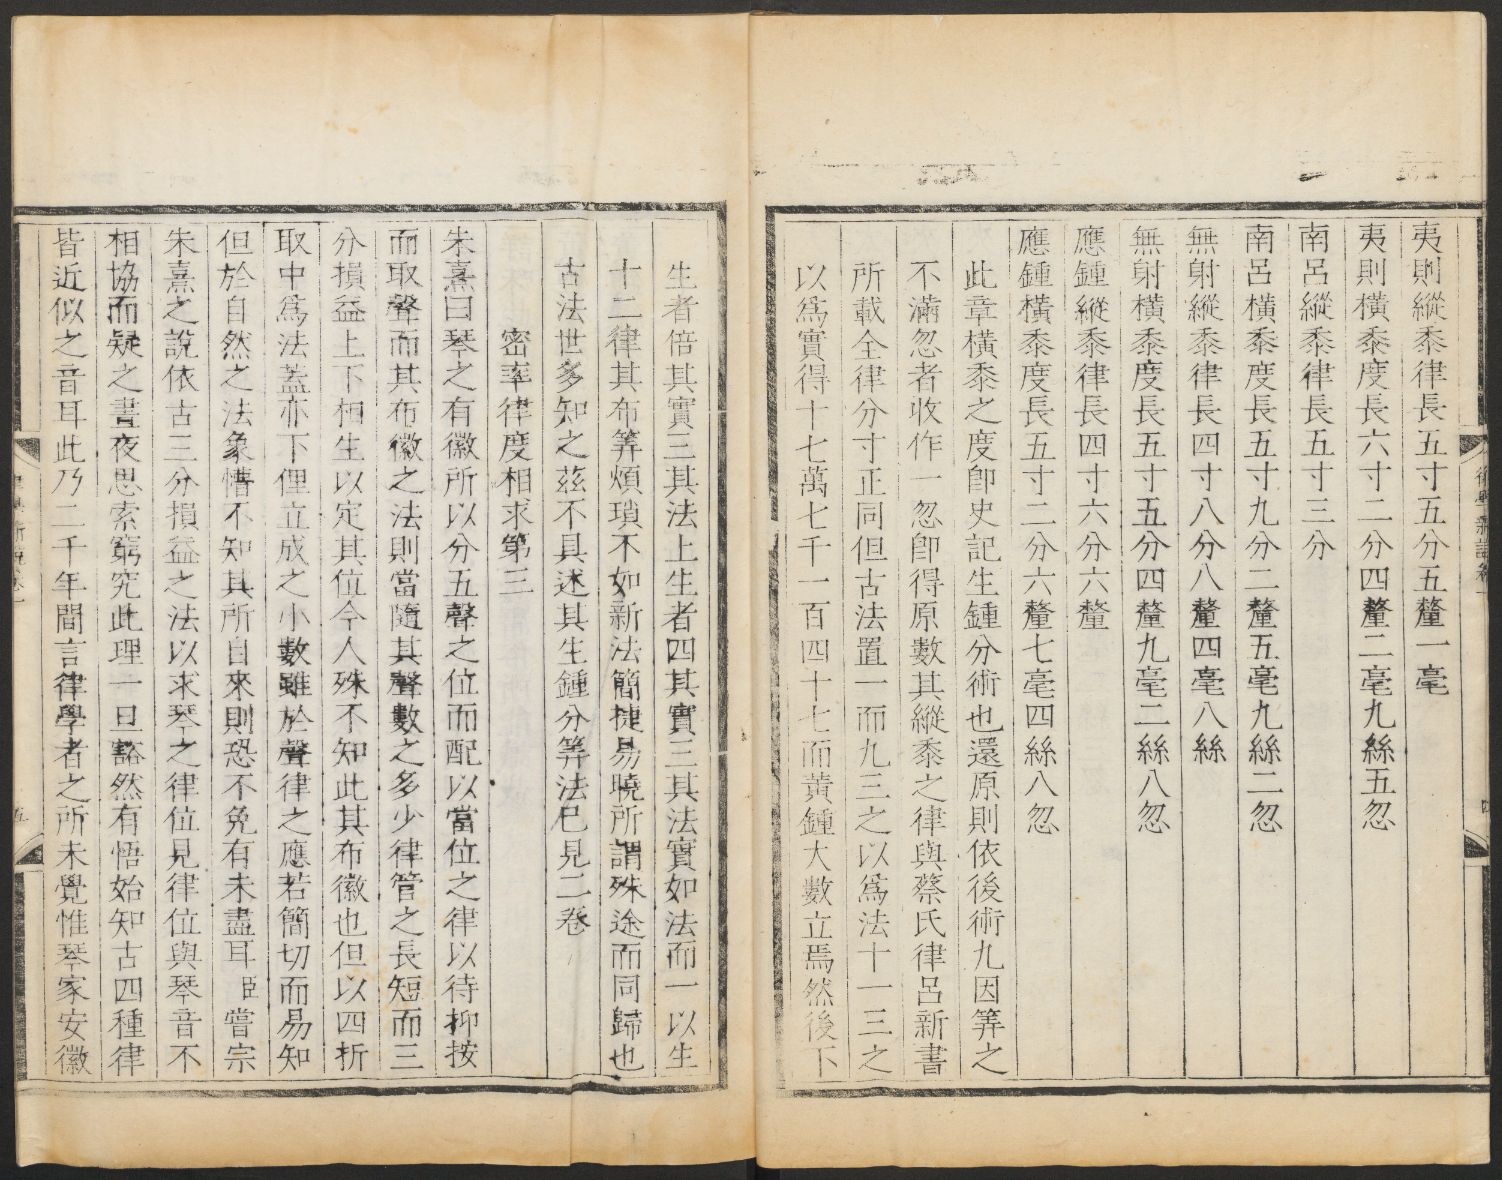 夷則縱黍律長五寸五分五釐一毫
夷則橫黍度長六寸二分四釐二毫九絲五忽
南呂縱黍律長五寸三分
南呂橫黍度長五寸九分二釐五毫九絲二忽
無射縱黍律長四寸八分八釐四毫八絲
無射橫黍度長五寸五分四釐九毫二絲八忽
應鍾縱黍律長四寸六分六釐
應鍾橫黍度長五寸二分六釐七毫四絲八忽
此章橫黍之度卽史記生鍾分術也還原則依後術九因筭之
不滿忽者收作一忽卽得原數其縱黍之律與蔡氏律呂新書
所載全律分寸正同但古法置一而九三之以爲法十一三之
以爲實得十七萬七千一百四十七而黃鍾大數立焉然後下
生者倍其實三其法上生者四其實三其法實如法而一以生
十二律其布筭煩瑣不如新法簡捷易曉所謂殊途而同歸也
古法世多知之茲不具述其生鍾分筭法已見二卷
密率律度相求第三
朱熹曰琴之有徽所以分五聲之位而配以當位之律以待抑按
而取聲而其布徽之法則當隨其聲數之多少律管之長短而三
分損益上下相生以定其位今人殊不知此其布徽也但以四折
取中爲法蓋亦下俚立成之小數雖於聲律之應若簡切而易知
但於自然之法象懵不知其所自來則恐不免有未盡耳臣嘗宗
朱熹之說依古三分損益之法以求琴之律位見律位與琴音不
相協而疑之晝夜思索窮究此理一旦豁然有悟始知古四種律
皆近似之音耳此乃二千年間言律學者之所未覺惟琴家安徽
律學新說卷一
五